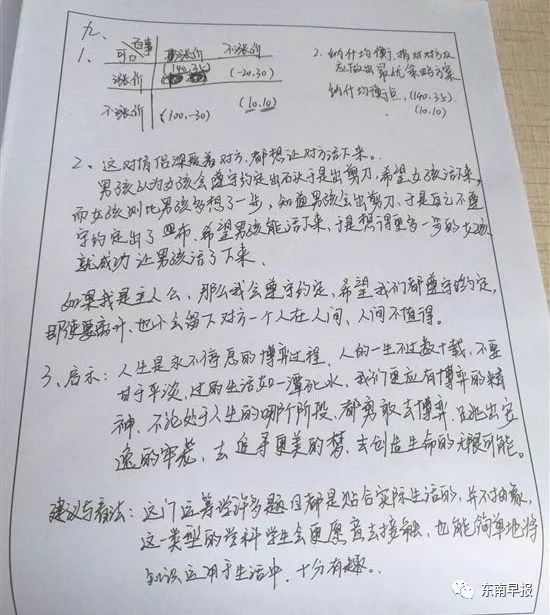 九、
1、 可口 百事 涨价 不涨价
涨价 (140,35) (-20,30)
不涨价 (100,-30) (10,10)
2. 纳什均衡,指对对方反
应做出最优策略方案
纳什均衡点,(140,35)
(10,10)
2、这对情侣深爱着对方,都想让对方活下来。
男孩认为女孩会遵守约定出石头于是出剪刀,希望女孩活下来,
而女孩则比男孩多想了一步,知道男孩会出剪刀,于是自己不遵
守约定出了布,希望男孩能活下来,于是想得更多一步的女孩
就成功让男孩活了下来、
如果我是主人公,那么我会遵守约定,希望我们都遵守约定,
即使要离开,也不会留下对方一个人在人间、人间不值得。
3、启示:人生是永不停息的博弈过程,人的一生不过数十载,不要
甘于平淡,过的生活如一潭死水,我们更应有博弈的精
神,不论处于人生的哪个阶段,都勇敢去博弈,跳出安
逸的牢笼,去追寻更美的梦、去创造生命的无限可能。
建议与看法:这门运筹学许多题目都是贴合实际生活的,并不抽象,
这一类型的学科学生会更愿意去接触,也能简单地将
知识运用于生活中,十分有趣。
东南早报